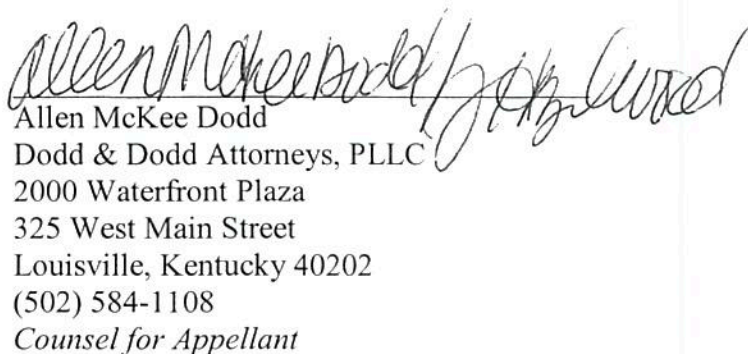 Allen McKee Dodd/
Allen McKee Dodd
Dodd & Dodd Attorneys, PLLC
2000 Waterfront Plaza
325 West Main Street
Louisville, Kentucky 40202
(502) 584-1108
Counsel for Appellant